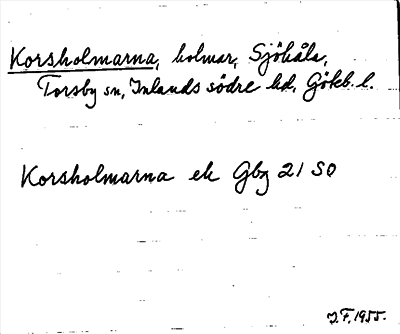 Korsholmarna, holmar, Sjöhåla,
Torsby sn, Inlands södre hd, Göteb. l.
Korsholmarna ek Gbg 21 SO
J F. 1955.